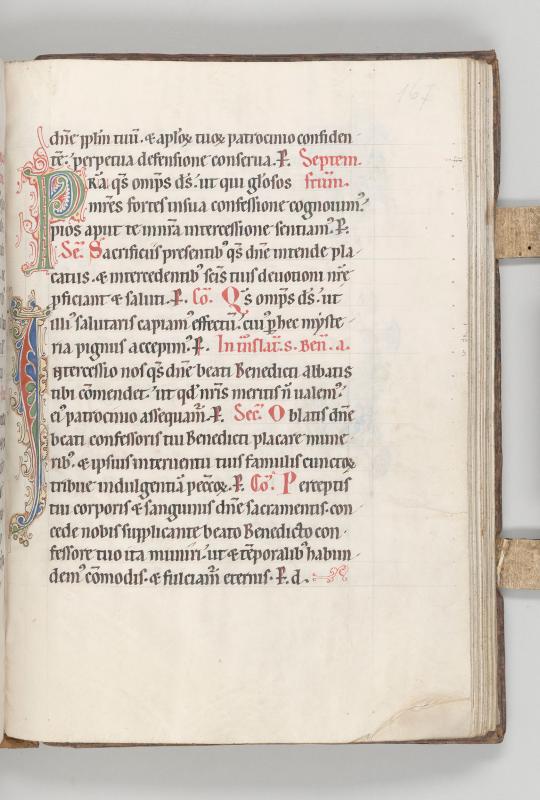 167
dn̄e pplm̄ tuū . & aploꝝ tuoꝝ patrocinio confiden
tē . perpetua defensione conserua . P̲. Septem
Pr̄a q̄s omp̄s d̄s . ut qui gl̄osos fr̄um .
mr̄es fortes in sua confessione cognouim᷒ .
pios aput te in nr̄a intercessione sentiam᷒ . P̲.
Sec̄. Sacrificiis presentib᷒ q̄s dn̄e intende pla
catus . & intercedentib᷒ sc̄is tuis deuotioni nr̄e
ꝓficiant & saluti . P̲. Co̅. Q̄s omp̄s d̄s . ut
illi᷒ salutaris capiam᷒ effectū . cui᷒ ꝑ hec myste
ria pignus accepim᷒ . P̲. In tn̄slat̄. s. Ben̄. a.
Intercessio nos q̄s dn̄e beati Benedicti abbatis
tibi cōmendet . ut qd̄ nr̄is meritis n̄ ualem᷒ .
ei᷒ patrocinio assequam̄r . P̲. Sec̄. Oblatis dn̄e
beati confessoris tui Benedicti placare mune
rib᷒ . & ipsius interuentu tuis famulis cunctoꝝ
tribue indulgentiā pecc̄oꝝ . P̲. Co̅. Perceptis
tui corporis & sanguinis dn̄e sacramentis . con
cede nobis supplicante beato Benedicto con
fessore tuo ita muniri . ut & tēporalib᷒ habun
dem᷒ cōmodis . & fulciam̄r eternis . P̲. d .